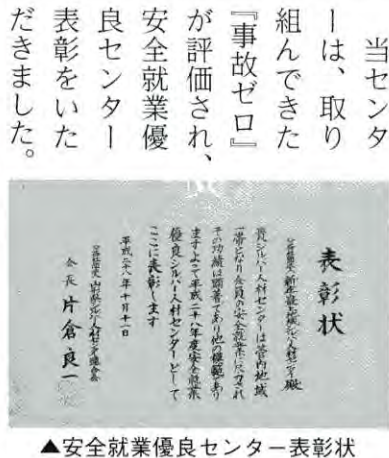 当センタ
ーは、取り
組んできた
『事故ゼロ』
が評価され、
安全就業優
良センター
表彰をいた
だきました。
表彰状
貴シルバー人材センターは管内地域
一帯に亘り会員の安全就業に尽力され
その功績は顕著であり他の模範であり
ますよって平成二十八年度安全就業
優良シルバー人材センターとして
ここに表彰します
平成二十八年十月十一日
会長 片倉良一
▲安全就業優良センター表彰状